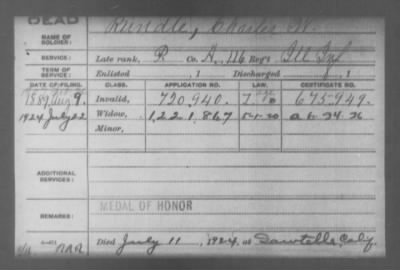 DEAD
NAME OF SOLDIER: Rundle, Charles W.
SERVICE: Late rank, P. Co. A, 116 Reg't Ill Inf
TERM OF SERVICE: Enlisted , 1 Discharged , 1
DATE OF FILING. CLASS. APPLICATION NO. LAW. CERTIFICATE NO.
1889, Aug 9. Invalid, 720,940. 675,949.
1924 July 22 Widow, 1221,867
Minor,
ADDITIONAL SERVICES:
REMARKS: MEDAL OF HONOR
Died July 11, 1924, at Sawtelle, Calif.